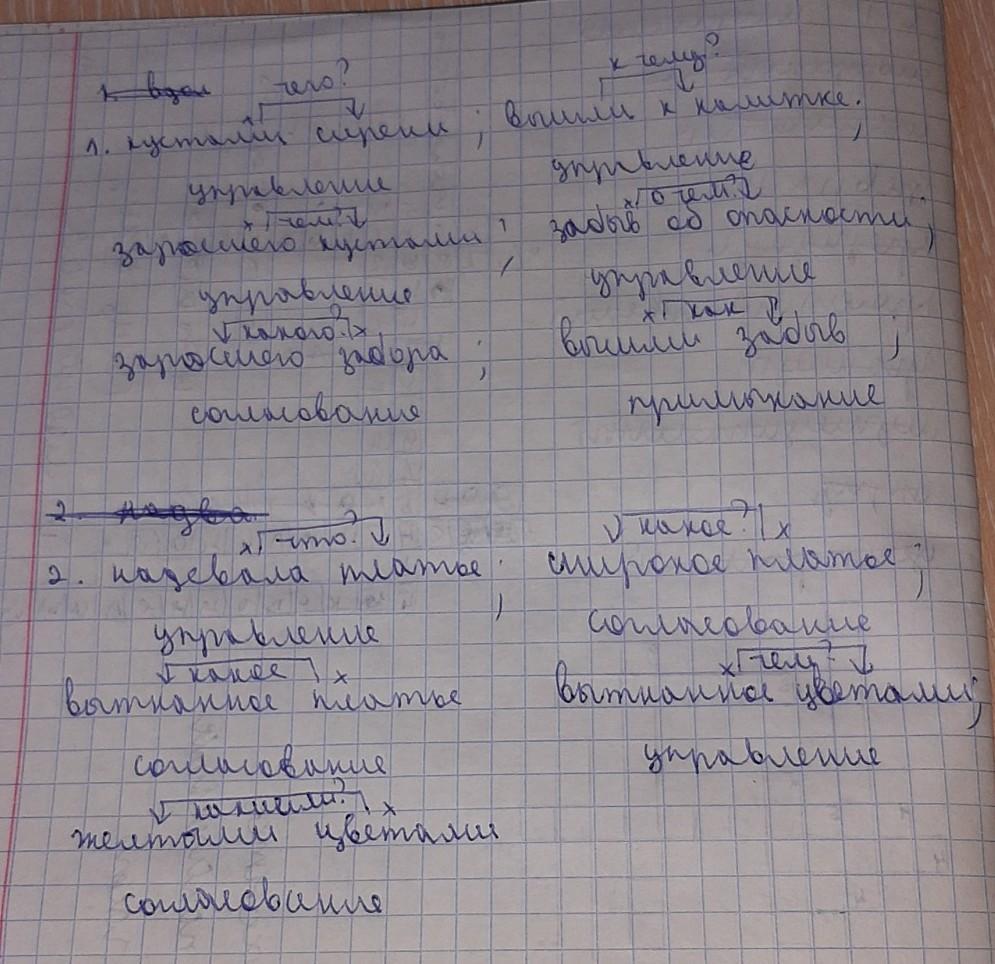 чего? к чему?
1. кустами сирени ; вышли к калитке.;
управление управление
х чем? х о чем?
заросшего кустами ; забыв об опасности ;
управление управление
какого? х х как
заросшего забора ; вышли забыв ;
согласование примыкание
х что? какое? х
2. надевала платье ; широкое платье ;
управление согласование
какое х х чем?
вытканное платье вытканное цветами ;
согласование управление
какими? х
желтыми цветами
согласование